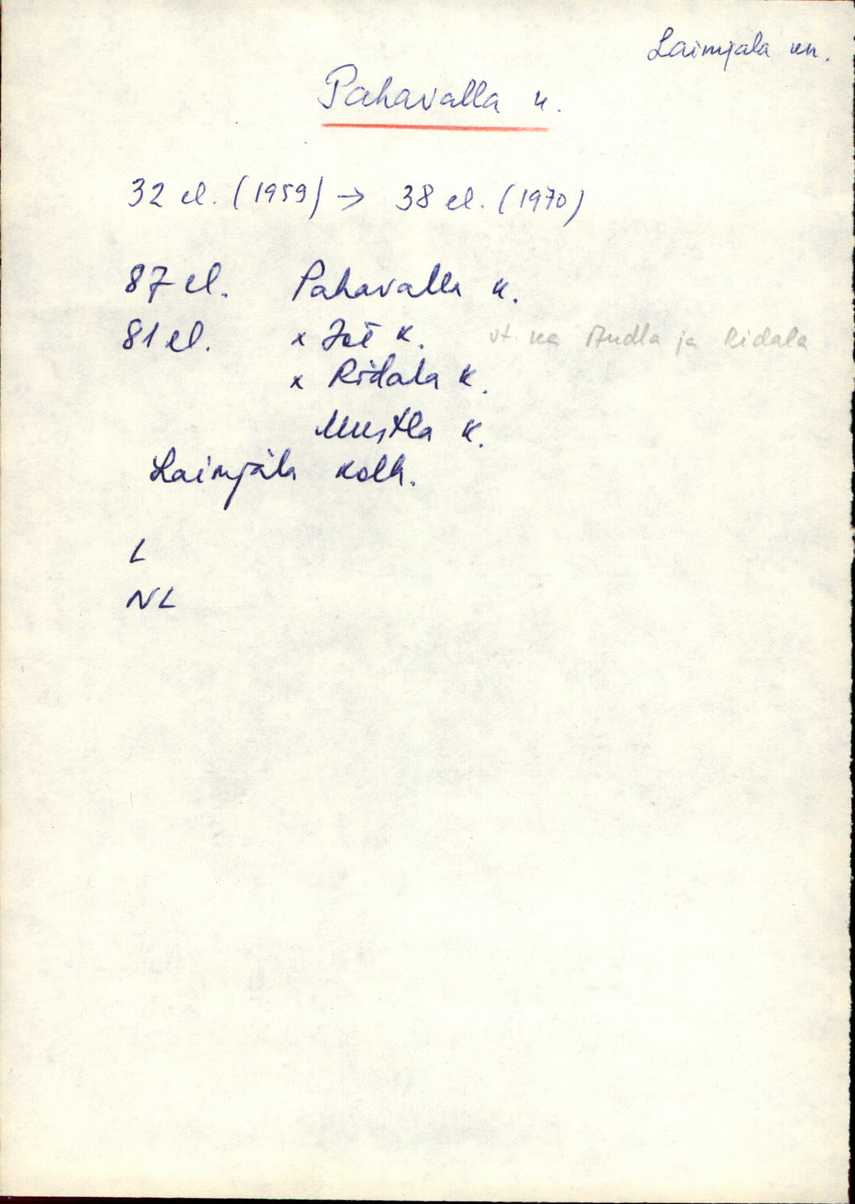 Laimjala kn.
Pahavalla k.
32 el. (1959) → 38 el. (1970)
87 el. Pahavalla k.
81 el. x Jõe k. vt. ka Audla ja Ridala
x Ridala k.
Mustla k.
Laimjala kolh.
L
NL